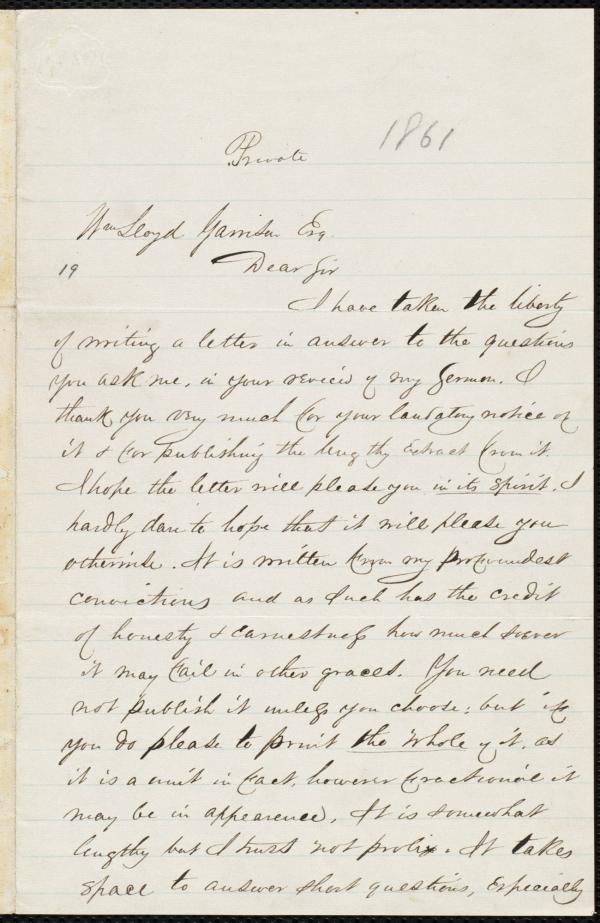 1861
Private
Wm Lloyd Garrison Esq.
19
Dear Sir
I have taken the liberty
of writing a letter in answer to the questions
you ask me, in your review of my Sermon. I
thank you very much for your laudatory notice of
it & for publishing the lengthy extract from it.
I hope the letter will please you in its spirit. I
hardly dare to hope that it will please you
otherwise. It is written from my profoundest
convictions and as such has the credit
of honesty & earnestness how much soever
it may fail in other graces. You need
not publish it unless you choose; but if
you do please to print the whole of it, as
it is a unit in fact, however fractional it
may be in appearence. It is somewhat
lengthy but I trust not prolix. It takes
space to answer short questions, especially